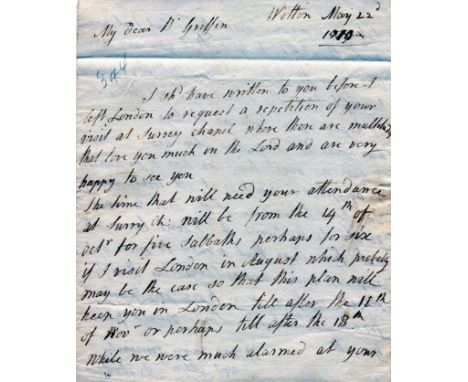 Wotton May 22d
My Dear Br Griffin 1810
344
I shd have written to you before I
left London to request a repetition of your
visit at Surrey Chapel where there are multitudes
that love you much in the Lord and are very
happy to see you
The time that will need your attendance
at Surry Ch: will be from the 14th of
Octr for five Sabbaths perhaps for six
if I visit London in August which probably
may be the case so that this plan will
keep you in London till after the 11th
of Novr or perhaps till after the 18th
While we were much alarmed at your